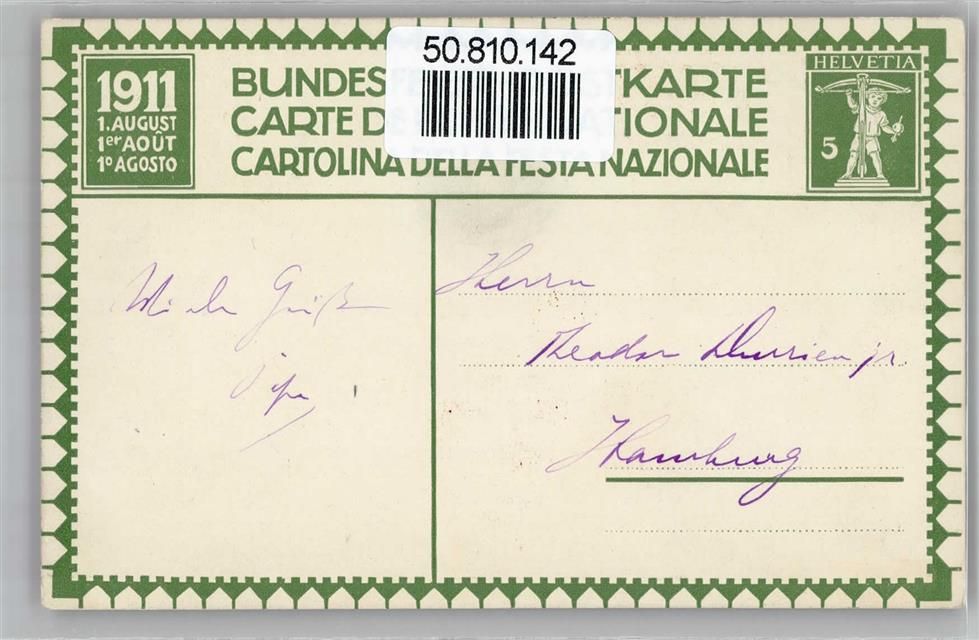 50.810.142
1911
1. AUGUST
1er AOÛT
1º AGOSTO
BUNDES KARTE
CARTE DE TIONALE
CARTOLINA DELLA FESTA NAZIONALE
HELVETIA
5
Viele Grüße
Herrn
Theodor jr.
Hamburg